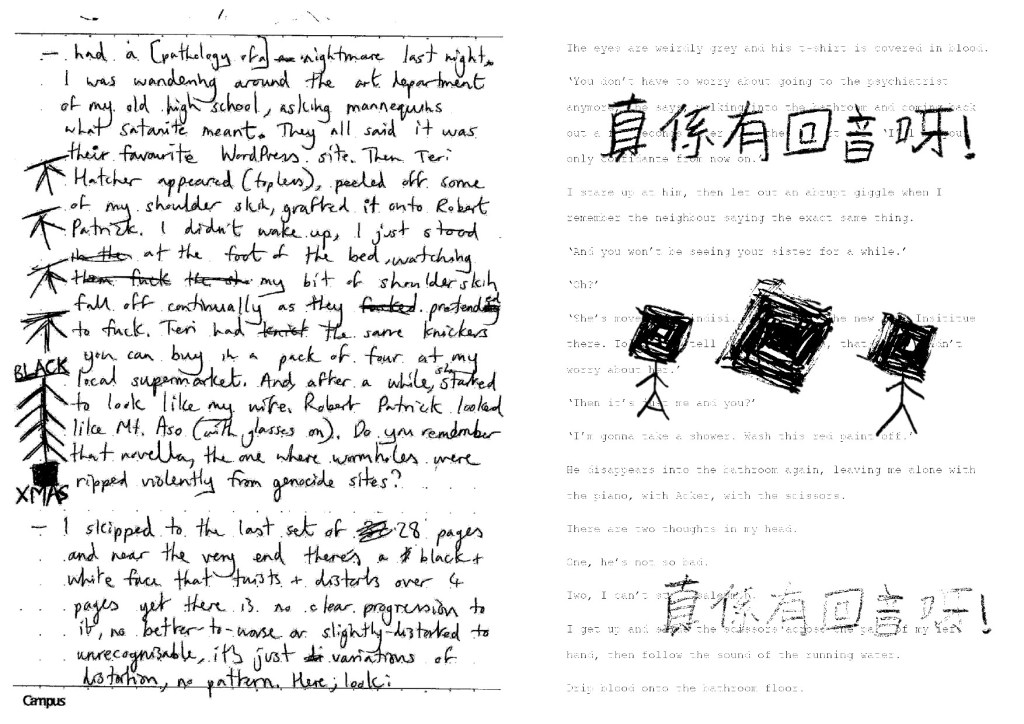 — had a [pathology of a] nightmare last night.
I was wandering around the art department
of my old high school, asking mannequins
what satanite meant. They all said it was
their favourite WordPress site. Then Teri
Hatcher appeared (topless), peeled off some
of my shoulder skin, grafted it onto Robert
Patrick. I didn't wake up, I just stood
at the foot of the bed, watching
them fuck the sh my bit of shoulder skin
fall off continually as they fucked pretended
to fuck. Teri had the same knickers
you can buy in a pack of four at my
local supermarket. And after a while, she started
to look like my wife. Robert Patrick looked
like Mt. Aso (with glasses on). Do you remember
that novella, the one where wormholes were
ripped violently from genocide sites?
BLACK
XMAS
— I skipped to the last set of 28 pages
and near the very end there's a black +
white face that twists + distorts over 4
pages yet there is no clear progression to
it, no better-to-worse or slightly-distorted to
unrecognizable, it's just variations of
distortion, no pattern. Here; look:
Campus
The eyes are weirdly grey and his t-shirt is covered in blood.
'You don't have to worry about going to the psychiatrist
anymore,' he says, walking into the bathroom and coming back
out a seconds
only confidance from now on.'
真係有回音呀!
I stare up at him, then let out an abrupt giggle when I
remember the neighbour saying the exact same thing.
'And you won't be seeing your sister for a while.'
'Oh?'
'She's move the new Insititue
there. tell that
worry about her.'
'Then it's just me and you?'
'I'm gonna take a shower. Wash this red paint off.'
He disappears into the bathroom again, leaving me alone with
the piano, with Acker, with the scissors.
There are two thoughts in my head.
One, he's not so bad.
Two, I can't
真係有回音呀!
I get up and the scissors across the palm of my left
hand, then follow the sound of the running water.
Drip blood onto the bathroom floor.